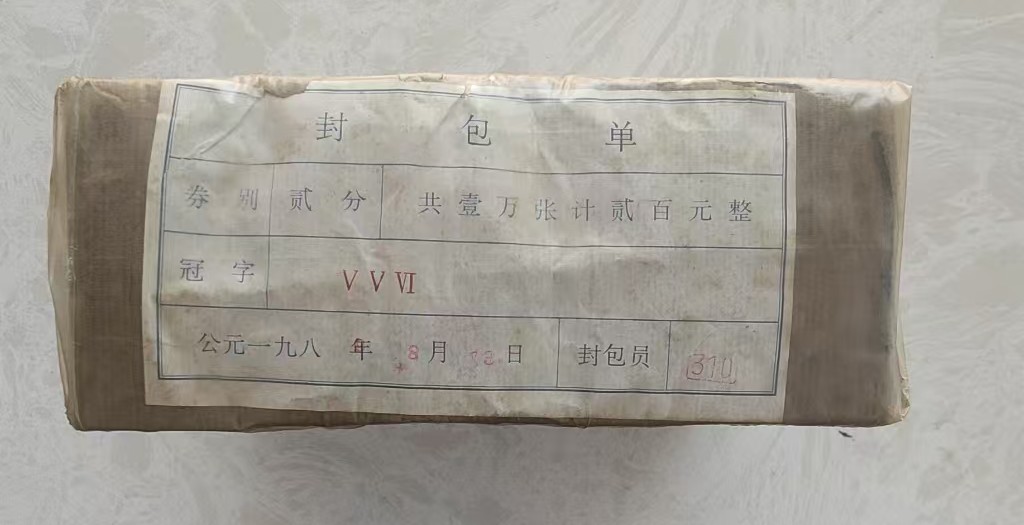 封包单
券别 贰分 共壹万张计贰百元整
冠字 V V VI
公元一九八 年 8月 日 封包员 310